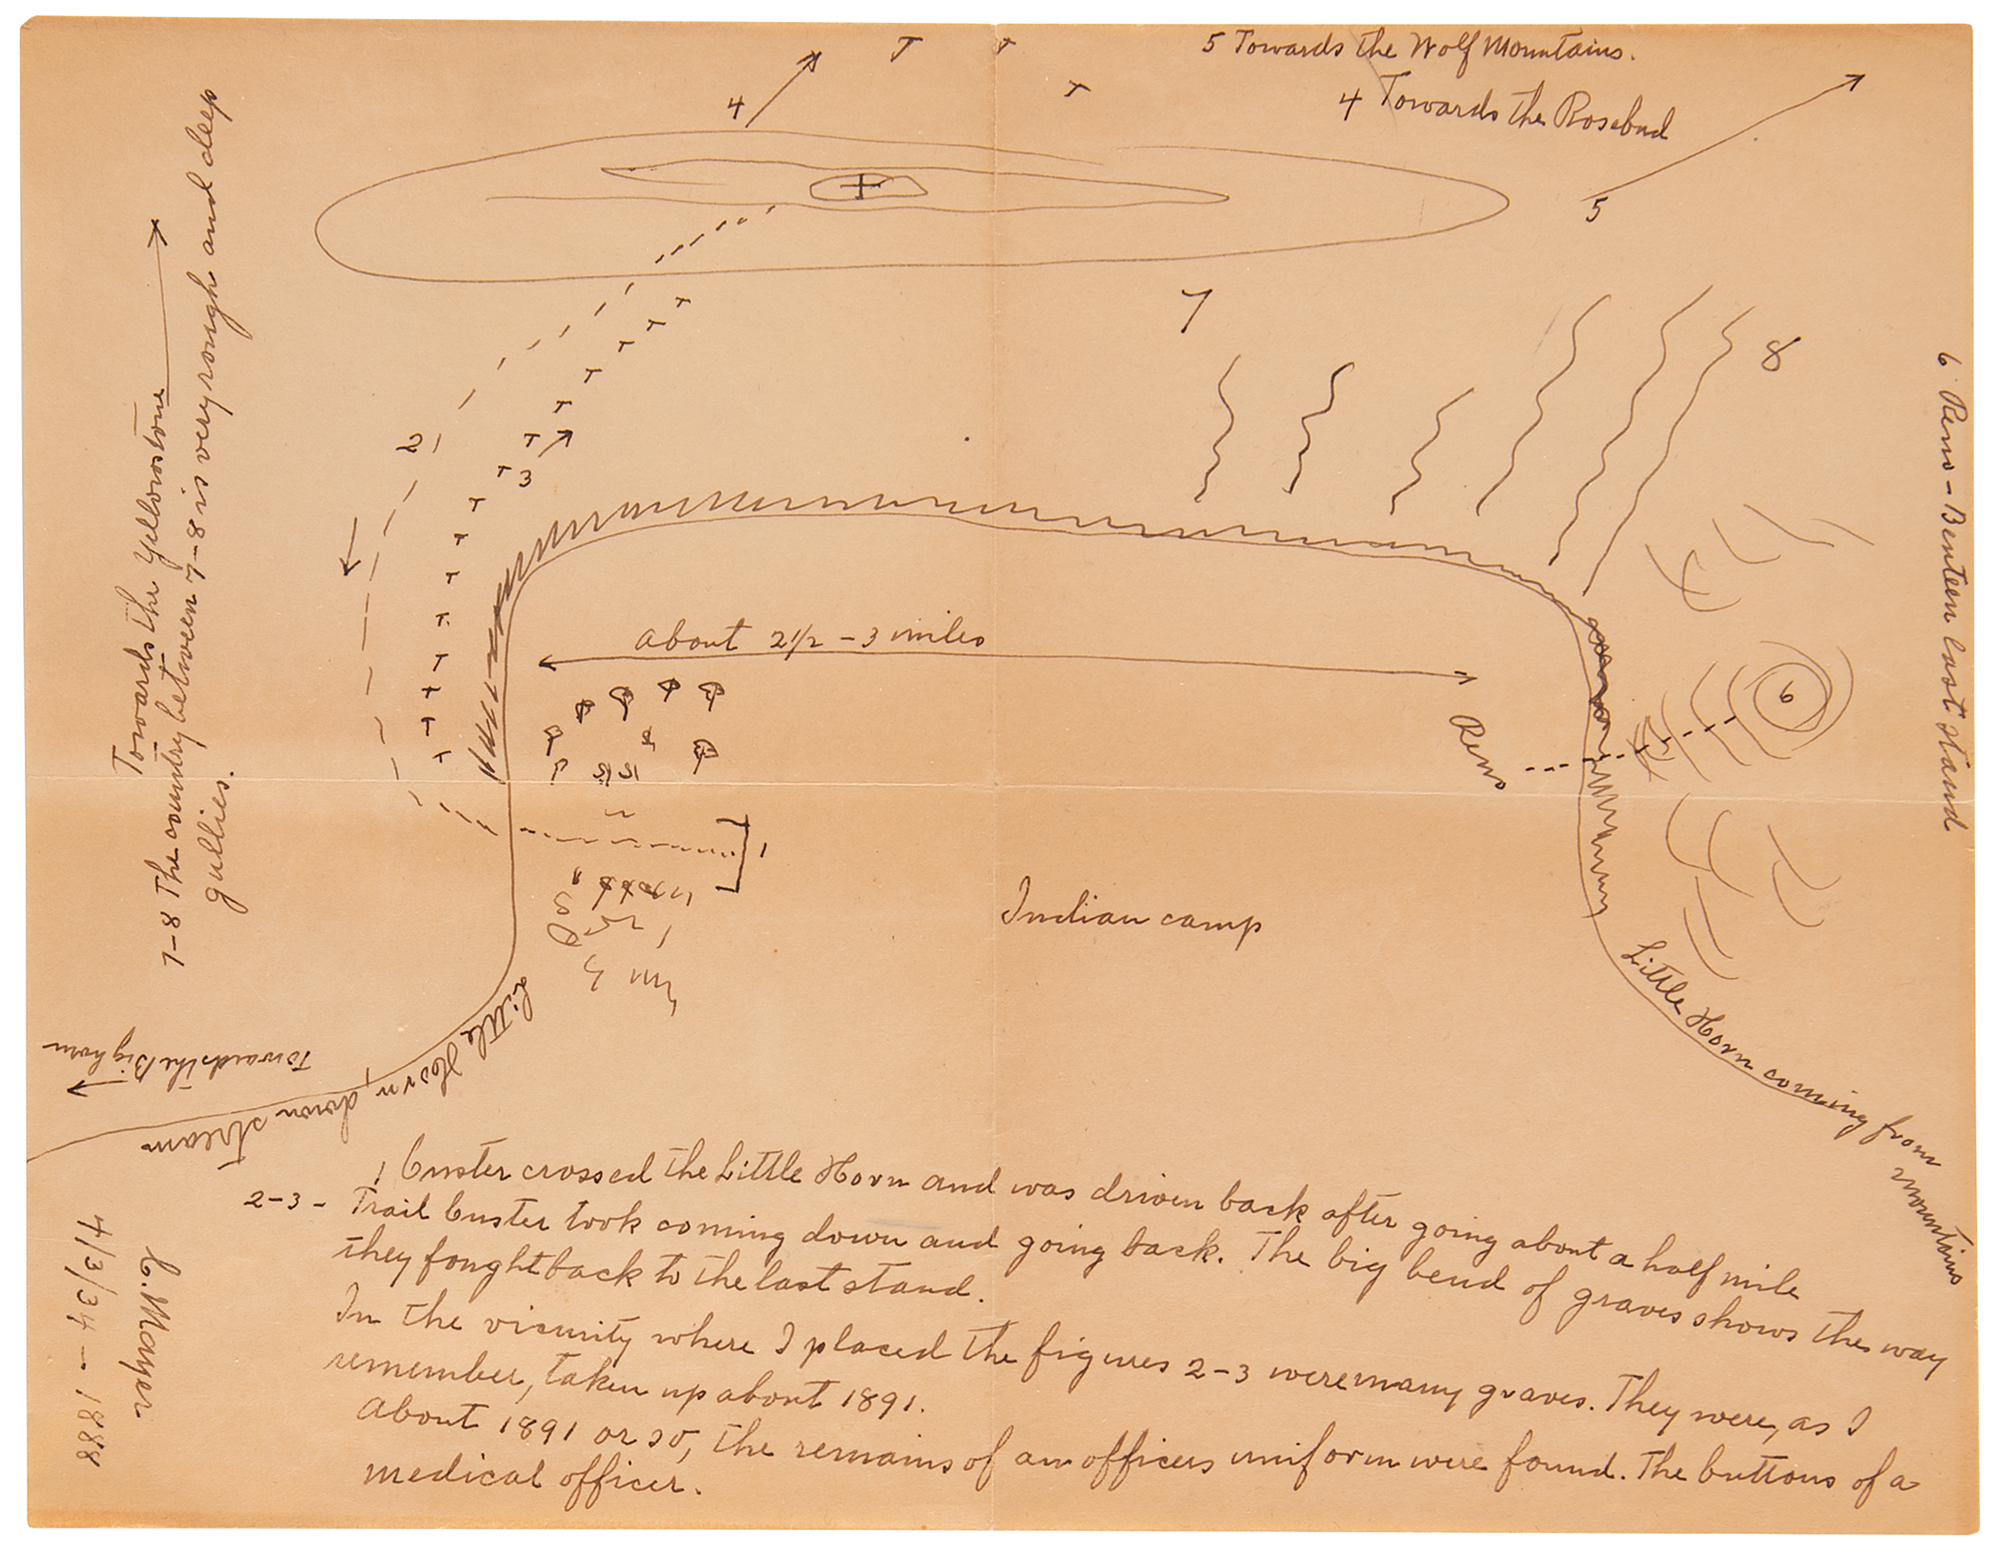 5 Towards the Wolf Mountains.
4 Towards the Rosebud
4
5
7
8
6 Reno - Benteen last stand
Towards the Yellowstone
7-8 The country between 7-8 is very rough and deep
gullies.
2
3
about 2 1/2 - 3 miles
Reno
6
1
Indian camp
Little Horn coming from
mountins
Little Horn, down stream
Towards the Big horn
1 Custer crossed the Little Horn and was driven back after going about a half mile
2-3 - Trail Custer took coming down and going back. The big bend of graves shows the way
they fought back to the last stand.
In the vicinity where I placed the figures 2-3 were many graves. They were, as I
remember, taken up about 1891.
About 1891 or so, the remains of an officers uniform were found. The buttons of a
medical officer.
C. Mayer
4/3/34 - 1888